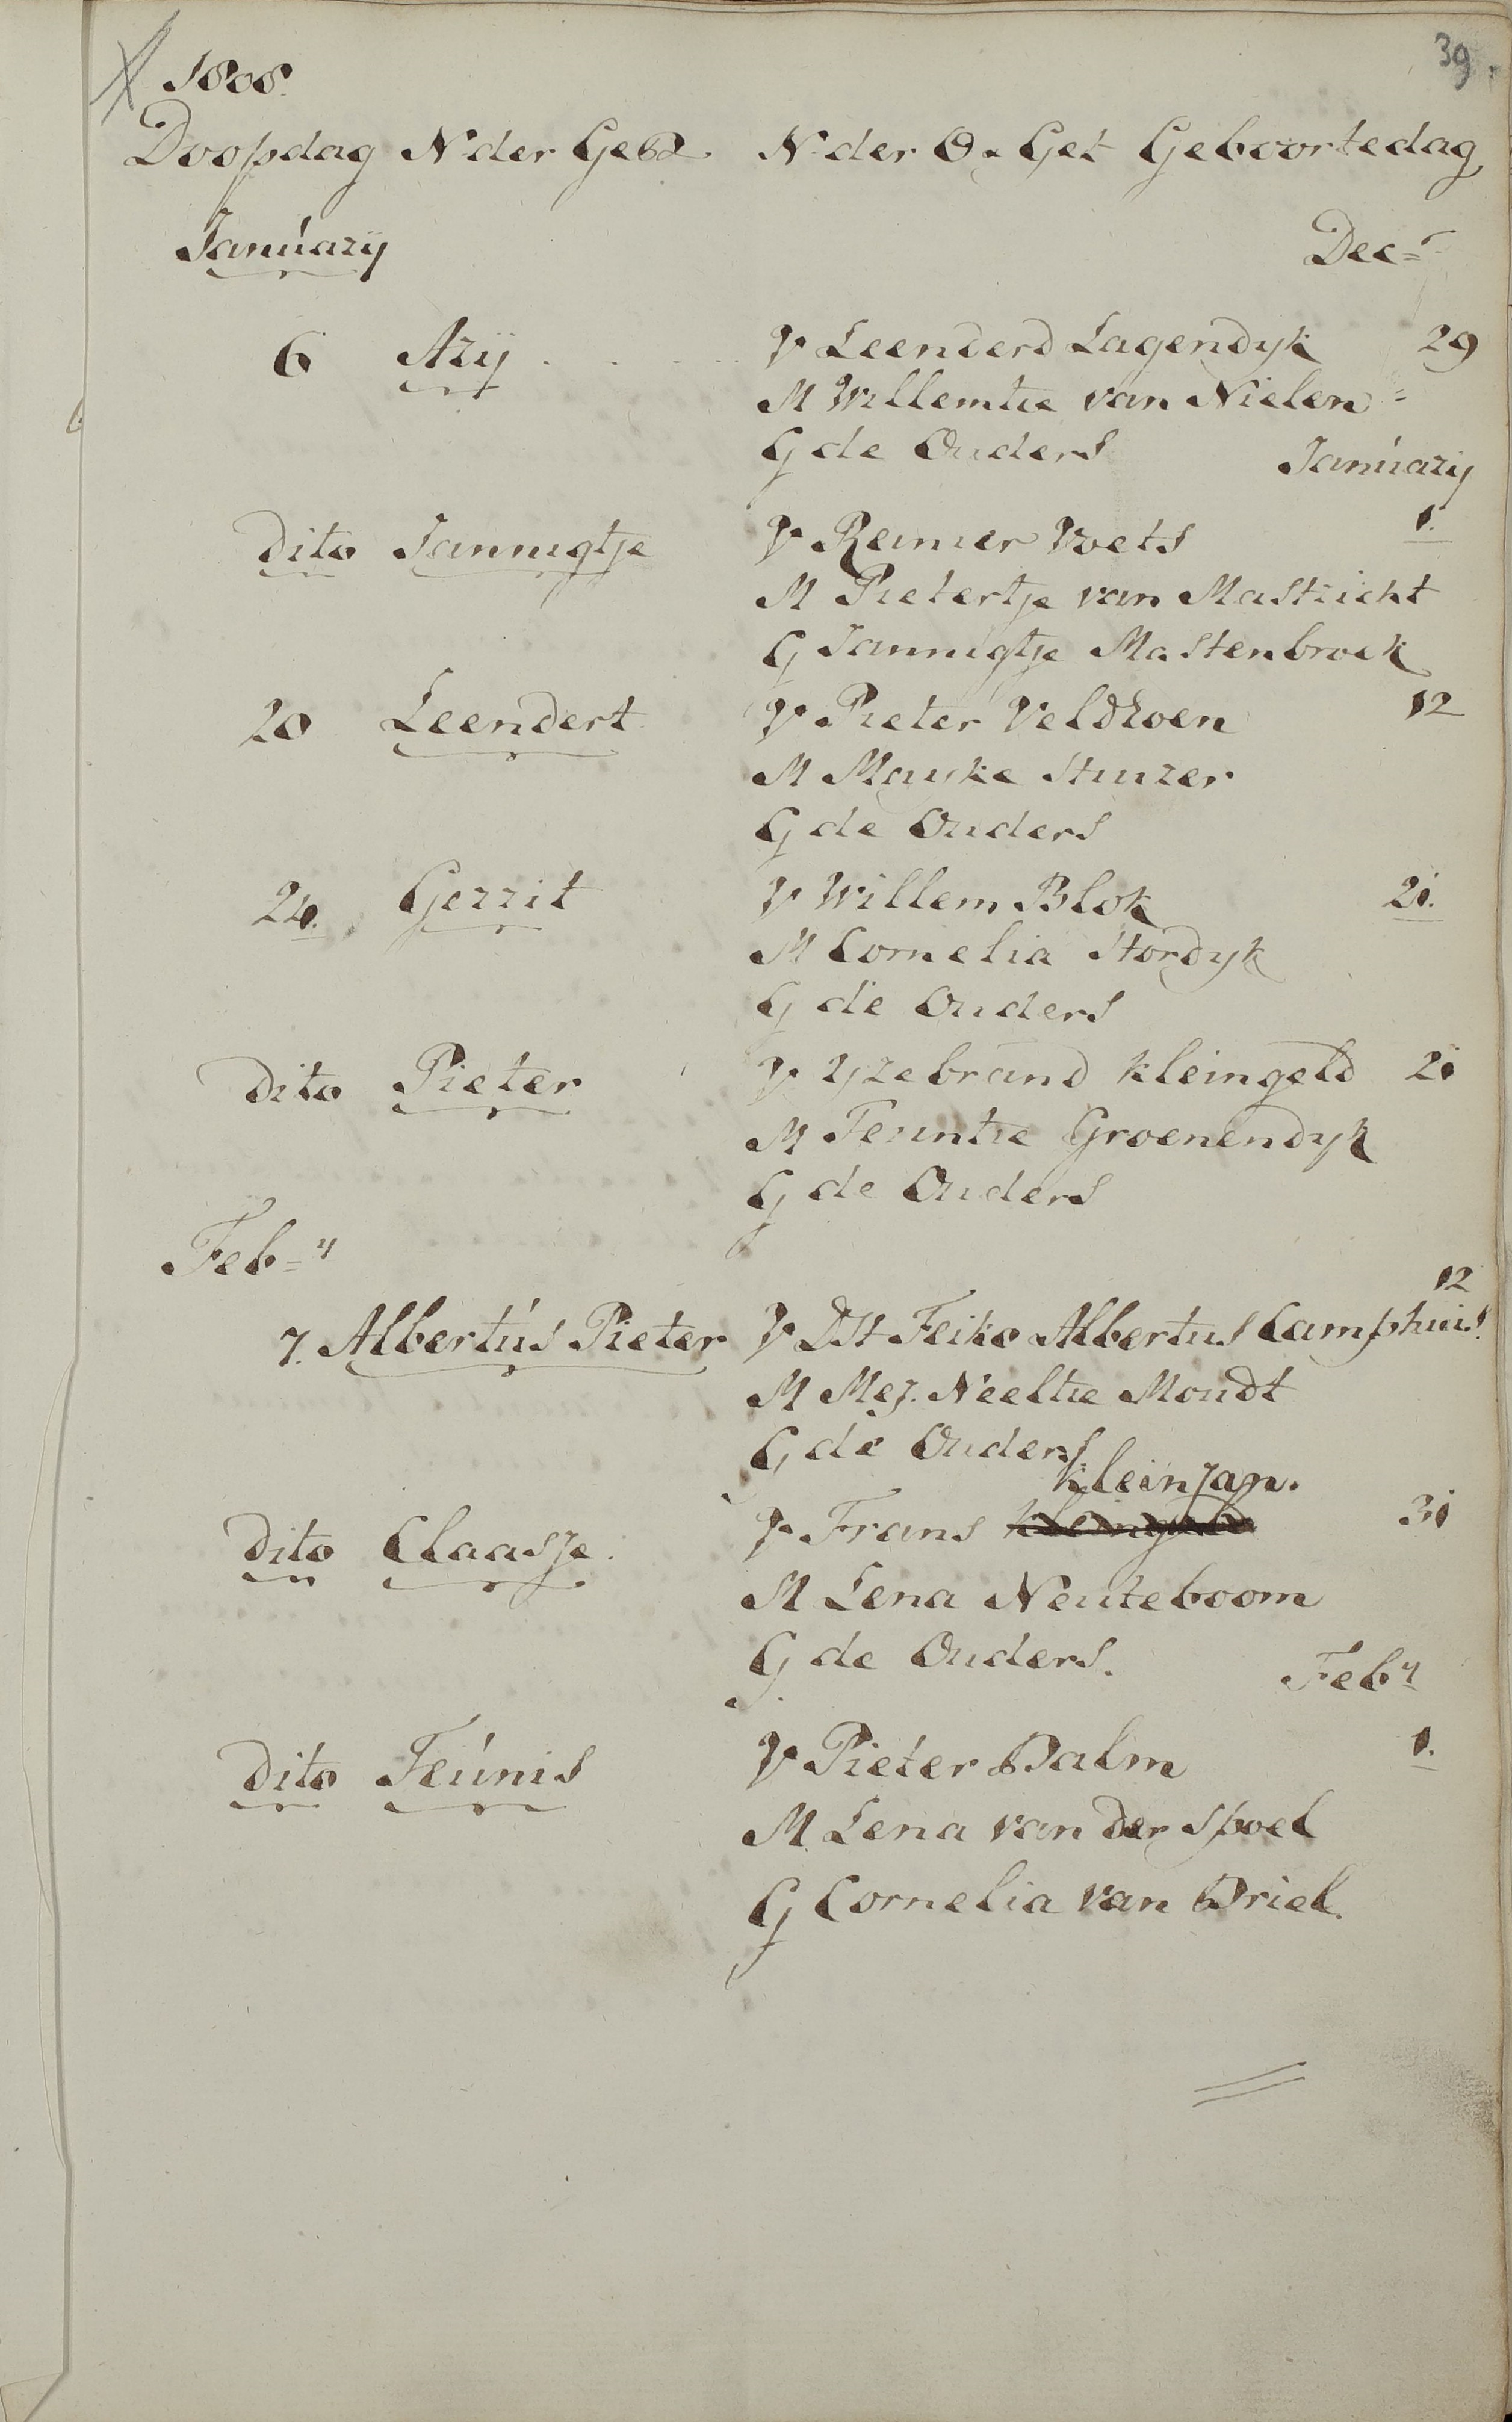 39.
1808.
Doopdag N der Ged. N der O. & Get Geboortedag
Januarij Decr
6 Arij . . . . . V Leenderd Lagendyk 29
M Willemtie van Nielen
G de Ouders Januarij
dito Jannigtje V Reinier Voets 1.
M Pietertje van Mastricht
G Jannigtje Mastenbroek
20 Leendert V Pieter Veldhoen 12
M Mayke Stuurer
G de Ouders
24. Gerrit V Willem Blok 21.
M Cornelia Stordyk
G de Ouders
dito Pieter V Yzebrand Kleingeld 21
M Teuntie Groenendyk
G de Ouders
Feby
12
7. Albertus Pieter V Dst Feiko Albertus Camphuis.
M Mej. Neeltie Mondt
G de Ouders
Kleinjan.
dito Claasje. V Frans Kleingeld 31
M Lena Neuteboom
G de Ouders. Feby
dito Teunis V Pieter Dalm 1.
M Lena van der Spoel
G Cornelia van Driel.